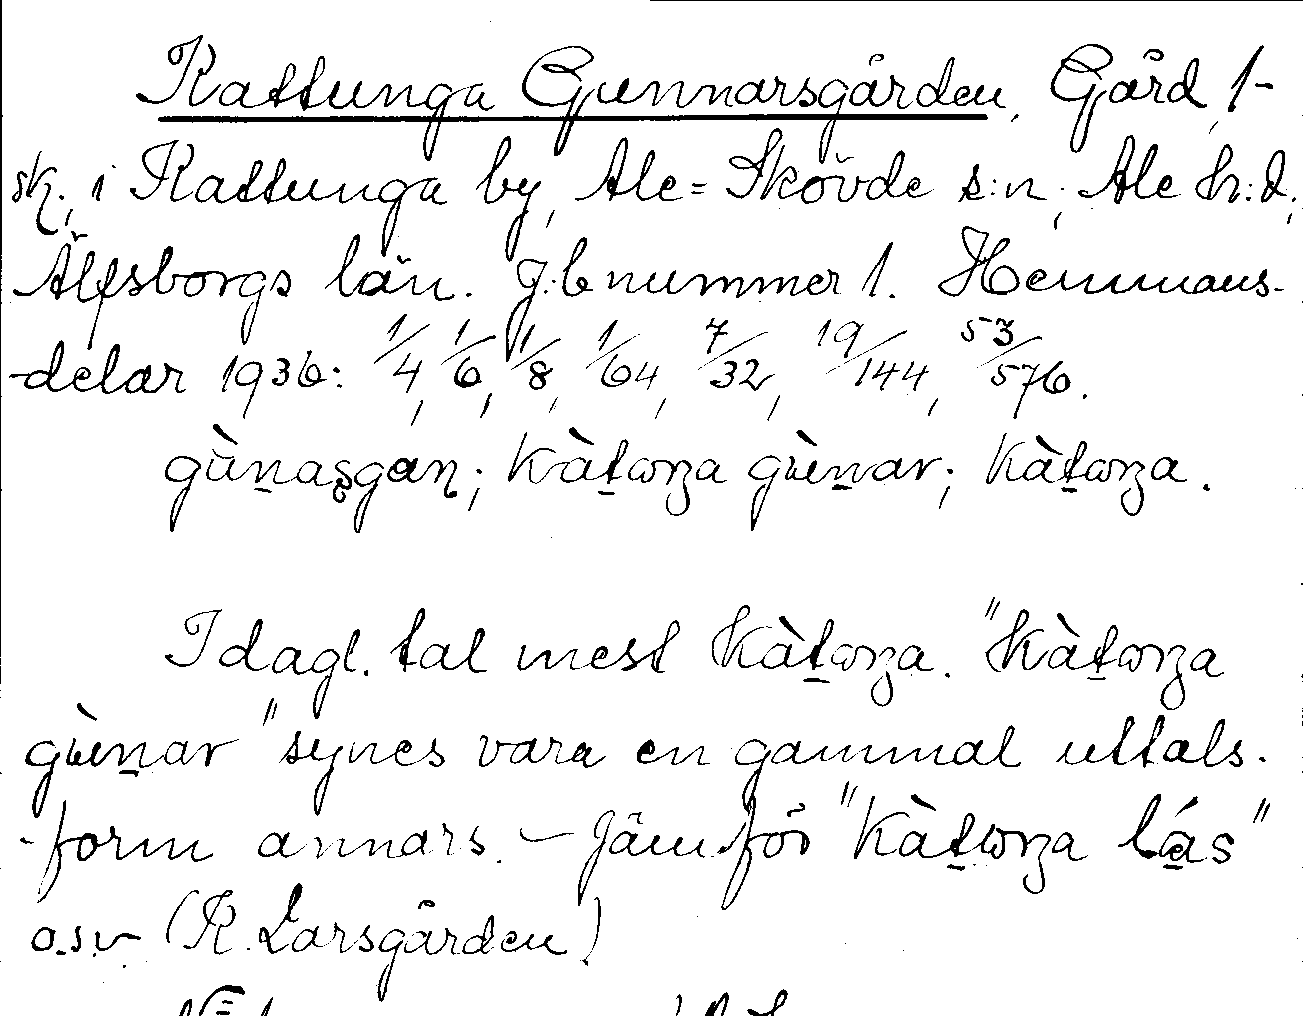 Kattunga Gunnarsgården, Gård, 1-
sk., i Kattunga by, Ale=Skövde s:n, Ale h:d,
Älfsborgs län. J:bnummer 1. Hemmans-
-delar 1936: 1/4, 1/6, 1/8, 1/64, 7/32, 19/144, 53/576.
gùnasgaɳ; kàtωŋa gùnar; kàtωŋa.
I dagl. tal mest kàtωŋa. "kàtωŋa
gùnar" synes vara en gammal uttals-
-form annars. – Jämför "kàtωŋa lás"
o.s.v. (K. Larsgården)